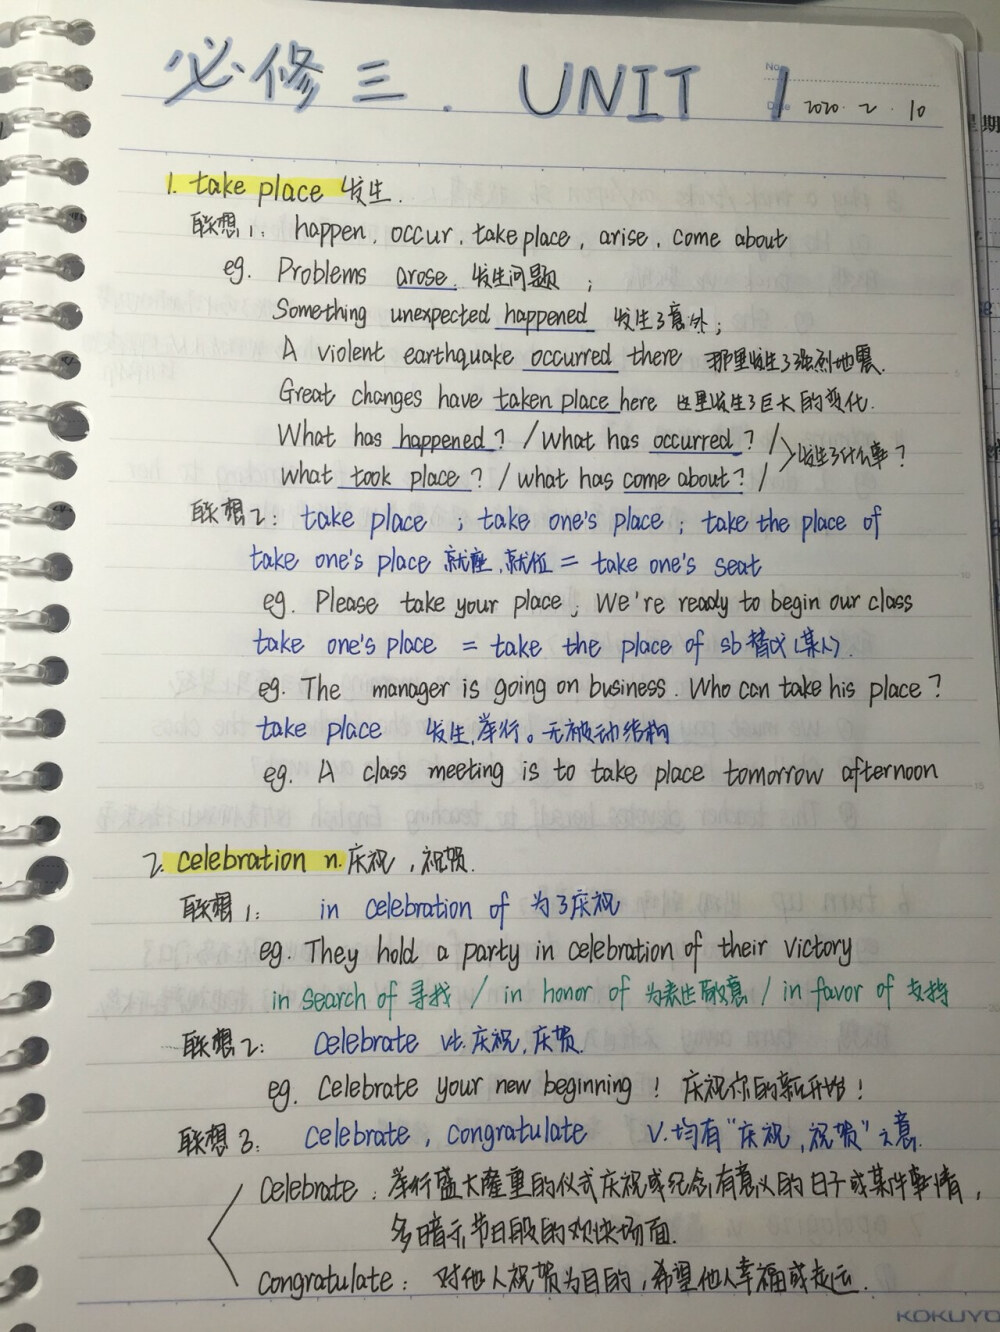 必修三. UNIT 1
No.
Date 2020. 2. 10
1. take place 发生.
联想1: happen, occur, take place, arise, come about
eg. Problems arose. 发生问题;
Something unexpected happened 发生了意外;
A violent earthquake occurred there 那里发生了强烈地震.
Great changes have taken place here 这里发生了巨大的变化.
What has happened? / What has occurred? /
What took place? / what has come about? / 发生了什么事?
联想2: take place ; take one's place ; take the place of
take one's place 就座,就位 = take one's seat
eg. Please take your place, We're ready to begin our class
take one's place = take the place of sb 替代(某人).
eg. The manager is going on business. Who can take his place?
take place 发生,举行。无被动结构
eg. A class meeting is to take place tomorrow afternoon
2. celebration n. 庆祝,祝贺.
联想1: in celebration of 为了庆祝
eg. They hold a party in celebration of their victory
in search of 寻找 / in honor of 为表达敬意 / in favor of 支持
联想2: Celebrate vt. 庆祝,庆贺.
eg. Celebrate your new beginning! 庆祝你的新开始!
联想3: celebrate, congratulate v.均有"庆祝,祝贺"之意.
Celebrate: 举行盛大隆重的仪式庆祝或纪念有意义的日子或某件事情,
多暗示节日段的欢快场面.
congratulate: 对他人祝贺为目的,希望他人幸福或走运.
KOKUYO